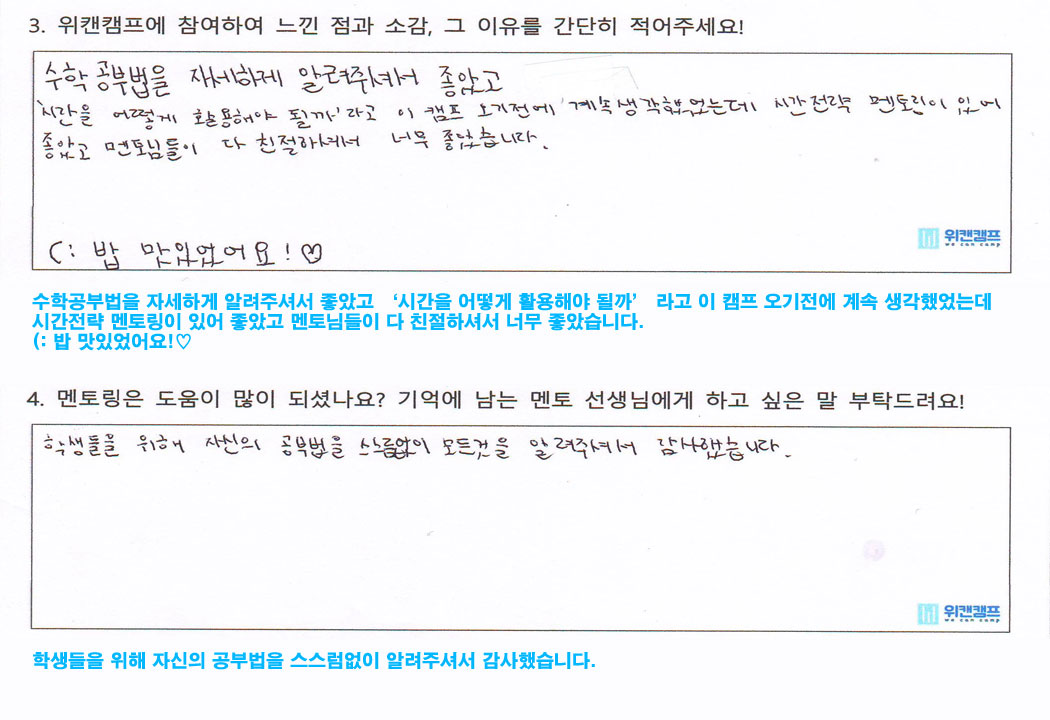 3. 위캔캠프에 참여하여 느낀 점과 소감, 그 이유를 간단히 적어주세요!
수학 공부법을 자세하게 알려주셔서 좋았고
'시간을 어떻게 활용해야 될까'라고 이 캠프 오기전에 계속생각했었는데 시간전략 멘토링이 있어
좋았고 멘토님들이 다 친절하셔서 너무 좋았습니다.
(: 밥 맛있었어요!♡
위캔캠프
we can camp
수학공부법을 자세하게 알려주셔서 좋았고 '시간을 어떻게 활용해야 될까' 라고 이 캠프 오기전에 계속 생각했었는데
시간전략 멘토링이 있어 좋았고 멘토님들이 다 친절하셔서 너무 좋았습니다.
(: 밥 맛있었어요!♡
4. 멘토링은 도움이 많이 되셨나요? 기억에 남는 멘토 선생님에게 하고 싶은 말 부탁드려요!
학생들을 위해 자신의 공부법을 스스럼없이 모든것을 알려주셔서 감사했습니다.
위캔캠프
we can camp
학생들을 위해 자신의 공부법을 스스럼없이 알려주셔서 감사했습니다.